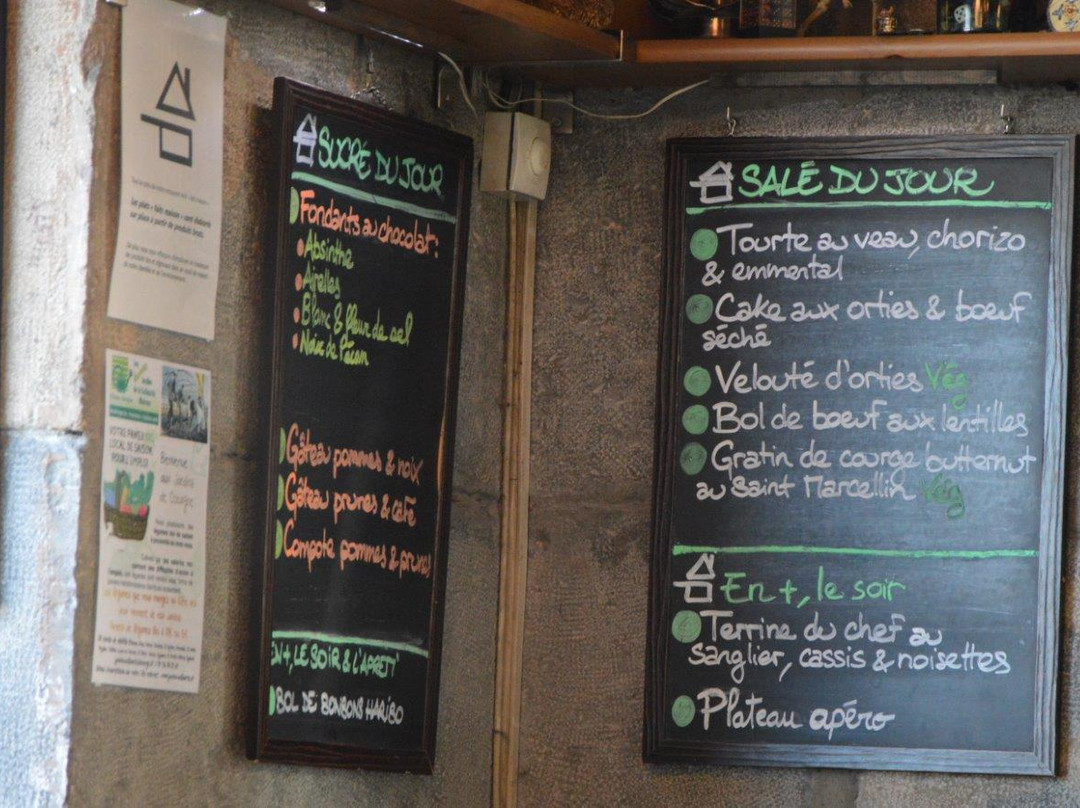 Les plats « faits maison » sont élaborés
sur place à partir de produits bruts.
VOTRE PANIER BIO
LOCAL DE SAISON
POUR L'EMPLOI
Bienvenue
aux Jardins
de Cocagne
SUCRÉ DU JOUR
Fondants au chocolat :
Absinthe
Airelles
Blanc & fleur de sel
Noix de Pécan
Gâteau pommes & noix
Gâteau prunes & café
Compote pommes & prunes
EN +, LE SOIR & L'APREM'
BOL DE BONBONS HARIBO
SALÉ DU JOUR
Tourte au veau, chorizo
& emmental
Cake aux orties & bœuf
séché
Velouté d'orties Vég
Bol de bœuf aux lentilles
Gratin de courge butternut
au Saint Marcellin Vég
En +, le soir
Terrine du chef au
sanglier, cassis & noisettes
Plateau apéro